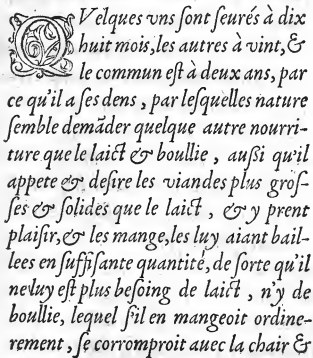 QVelques vns ſont ſeurés à dix
huit mois, les autres à vint, &
le commun eſt à deux ans, par
ce qu'il a ſes dens, par leſquelles nature
ſemble demãder quelque autre nourri-
ture que le laict & boullie, auſsi qu'il
appete & deſire les viandes plus groſ-
ſes & ſolides que le laict, & y prent
plaiſir, & les mange, les luy aiant bail-
lees en ſuffiſante quantité, de ſorte qu'il
ne luy eſt plus beſoing de laict, n'y de
boullie, lequel ſ'il en mangeoit ordine-
rement, ſe corromproit auec la chair &